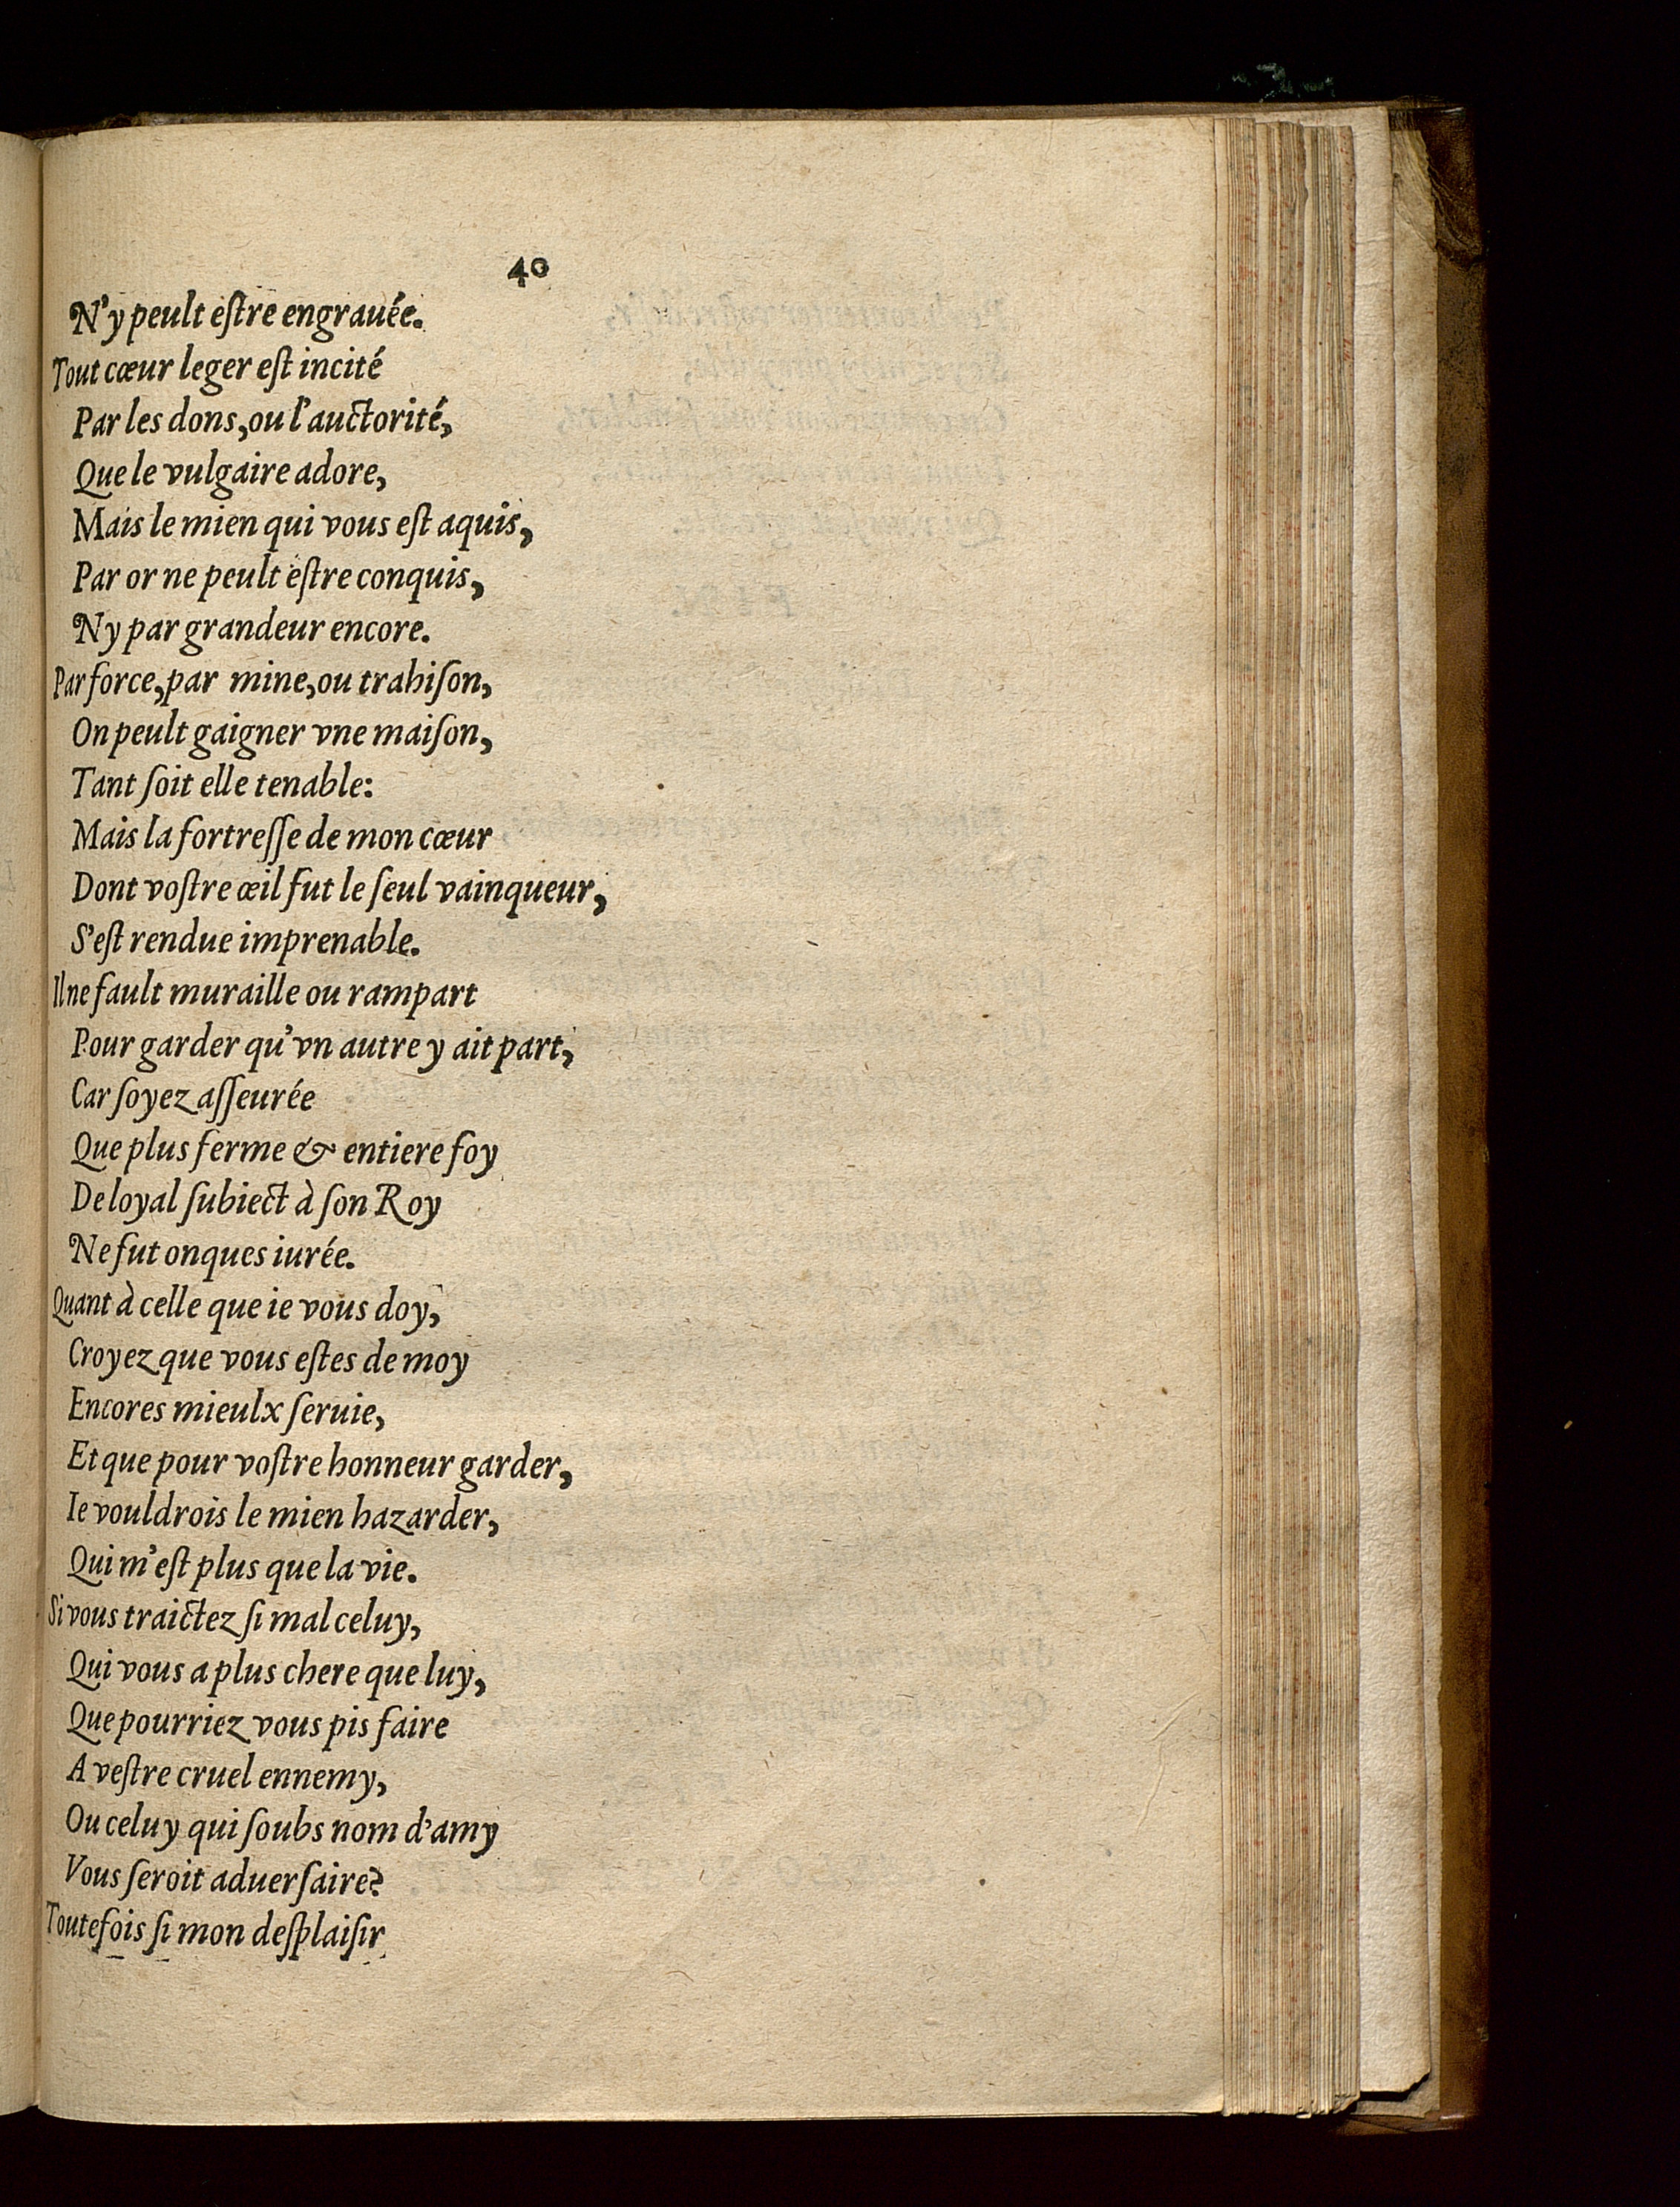 40
N'y peult eſtre engrauée.
Tout cœur leger eſt incité
Par les dons, ou l'auctorité,
Que le vulgaire adore,
Mais le mien qui vous eſt aquis,
Par or ne peult eſtre conquis,
Ny par grandeur encore.
Par force, par mine, ou trahiſon,
On peult gaigner vne maiſon,
Tant ſoit elle tenable:
Mais la fortreſſe de mon cœur
Dont voſtre œil fut le ſeul vainqueur,
S'eſt rendue imprenable.
Il ne fault muraille ou rampart
Pour garder qu'vn autre y ait part,
Car ſoyez aſſeurée
Que plus ferme & entiere foy
De loyal ſubiect à ſon Roy
Ne fut onques iurée.
Quant à celle que ie vous doy,
Croyez que vous eſtes de moy
Encores mieulx ſeruie,
Et que pour voſtre honneur garder,
Ie vouldrois le mien hazarder,
Qui m'eſt plus que la vie.
Si vous traictez ſi mal celuy,
Qui vous a plus chere que luy,
Que pourriez vous pis faire
A veſtre cruel ennemy,
Ou celuy qui ſoubs nom d'amy
Vous ſeroit aduerſaire?
Toutefois ſi mon deſplaiſir